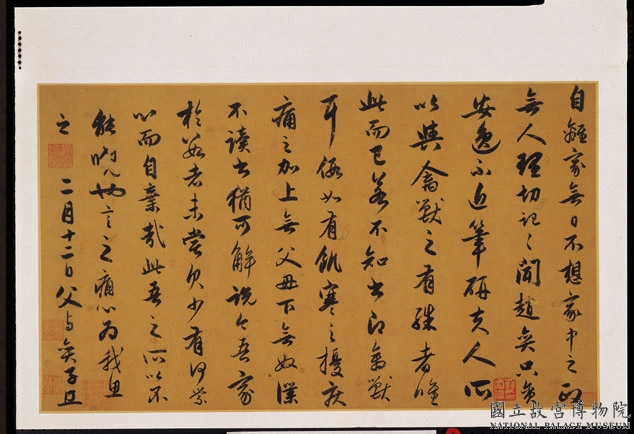 自離家無日不想家中之
無人理切記〻聞趙
安逸不近筆硯夫人所
以與禽獸之有殊者唯
此而已若不知書即禽獸
耳儻如有飢寒之擾疾
痛之加上無父母下無奴僕
不讀書猶可解說今吾家
於數者未嘗欠少有何
心而自棄哉此吾之所以不
能也言之痛心為我
之
二月十二日父
國立故宮博物院
NATIONAL PALACE MUSEUM